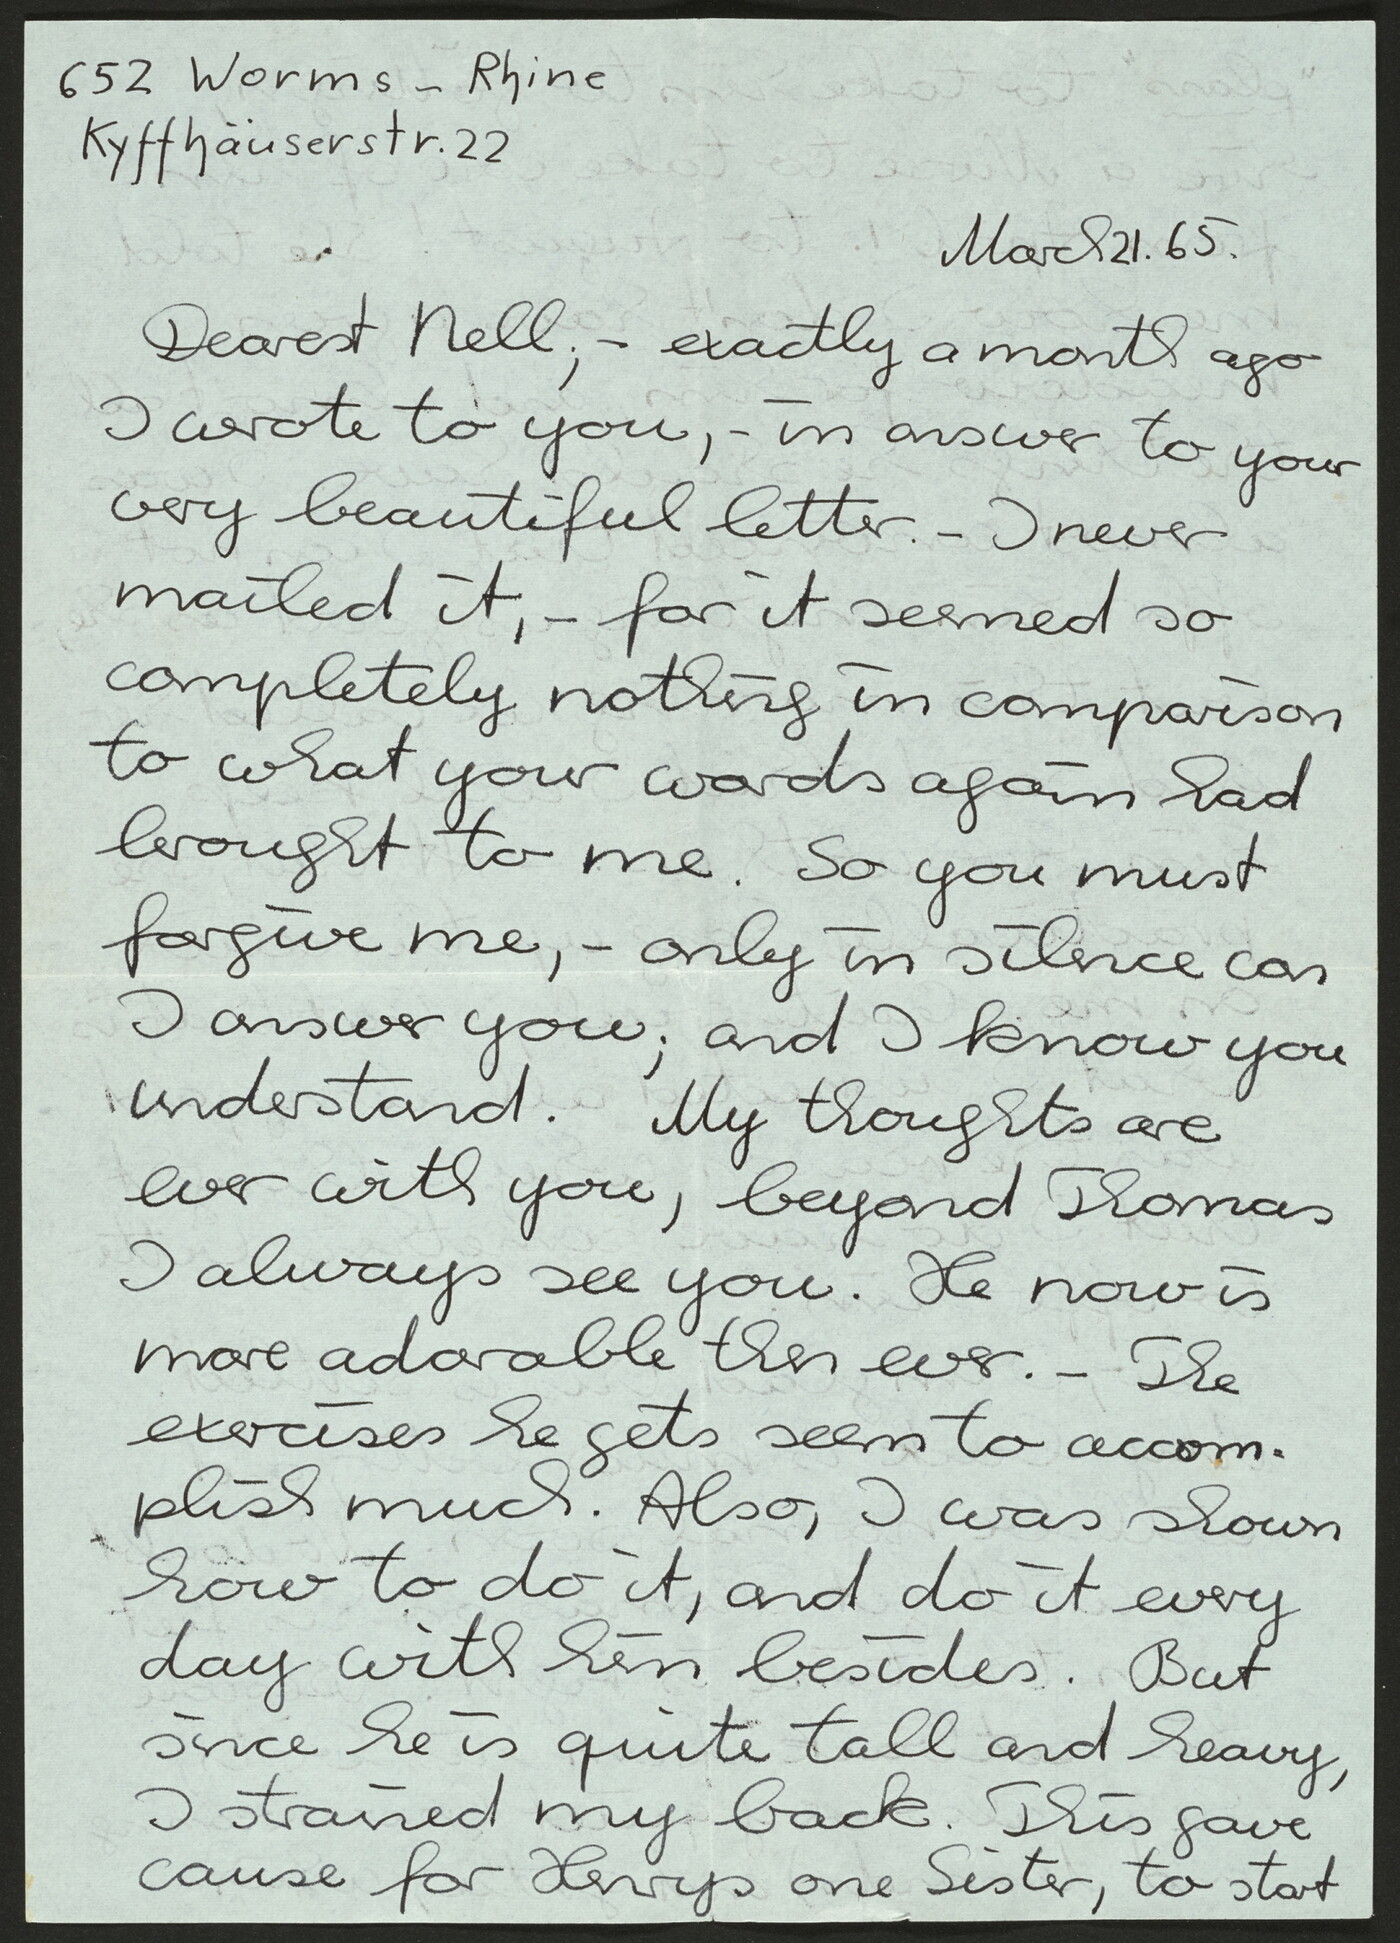 652 Worms - Rhine
Kyffhäuserstr. 22
March 21. 65.
Dearest Nell, - exactly a month ago
I wrote to you, - in answer to your
very beautiful letter. - I never
mailed it, - for it seemed so
completely nothing in comparison
to what your words again had
brought to me. So you must
forgive me, - only in silence can
I answer you; and I know you
understand. My thoughts are
ever with you, beyond Thomas
I always see you. He now is
more adorable then ever. - The
exercises he gets seem to accom-
plish much. Also, I was shown
how to do it, and do it every
day with him besides. But
since he is quite tall and heavy,
I strained my back. This gave
cause for Henrys one Sister, to start